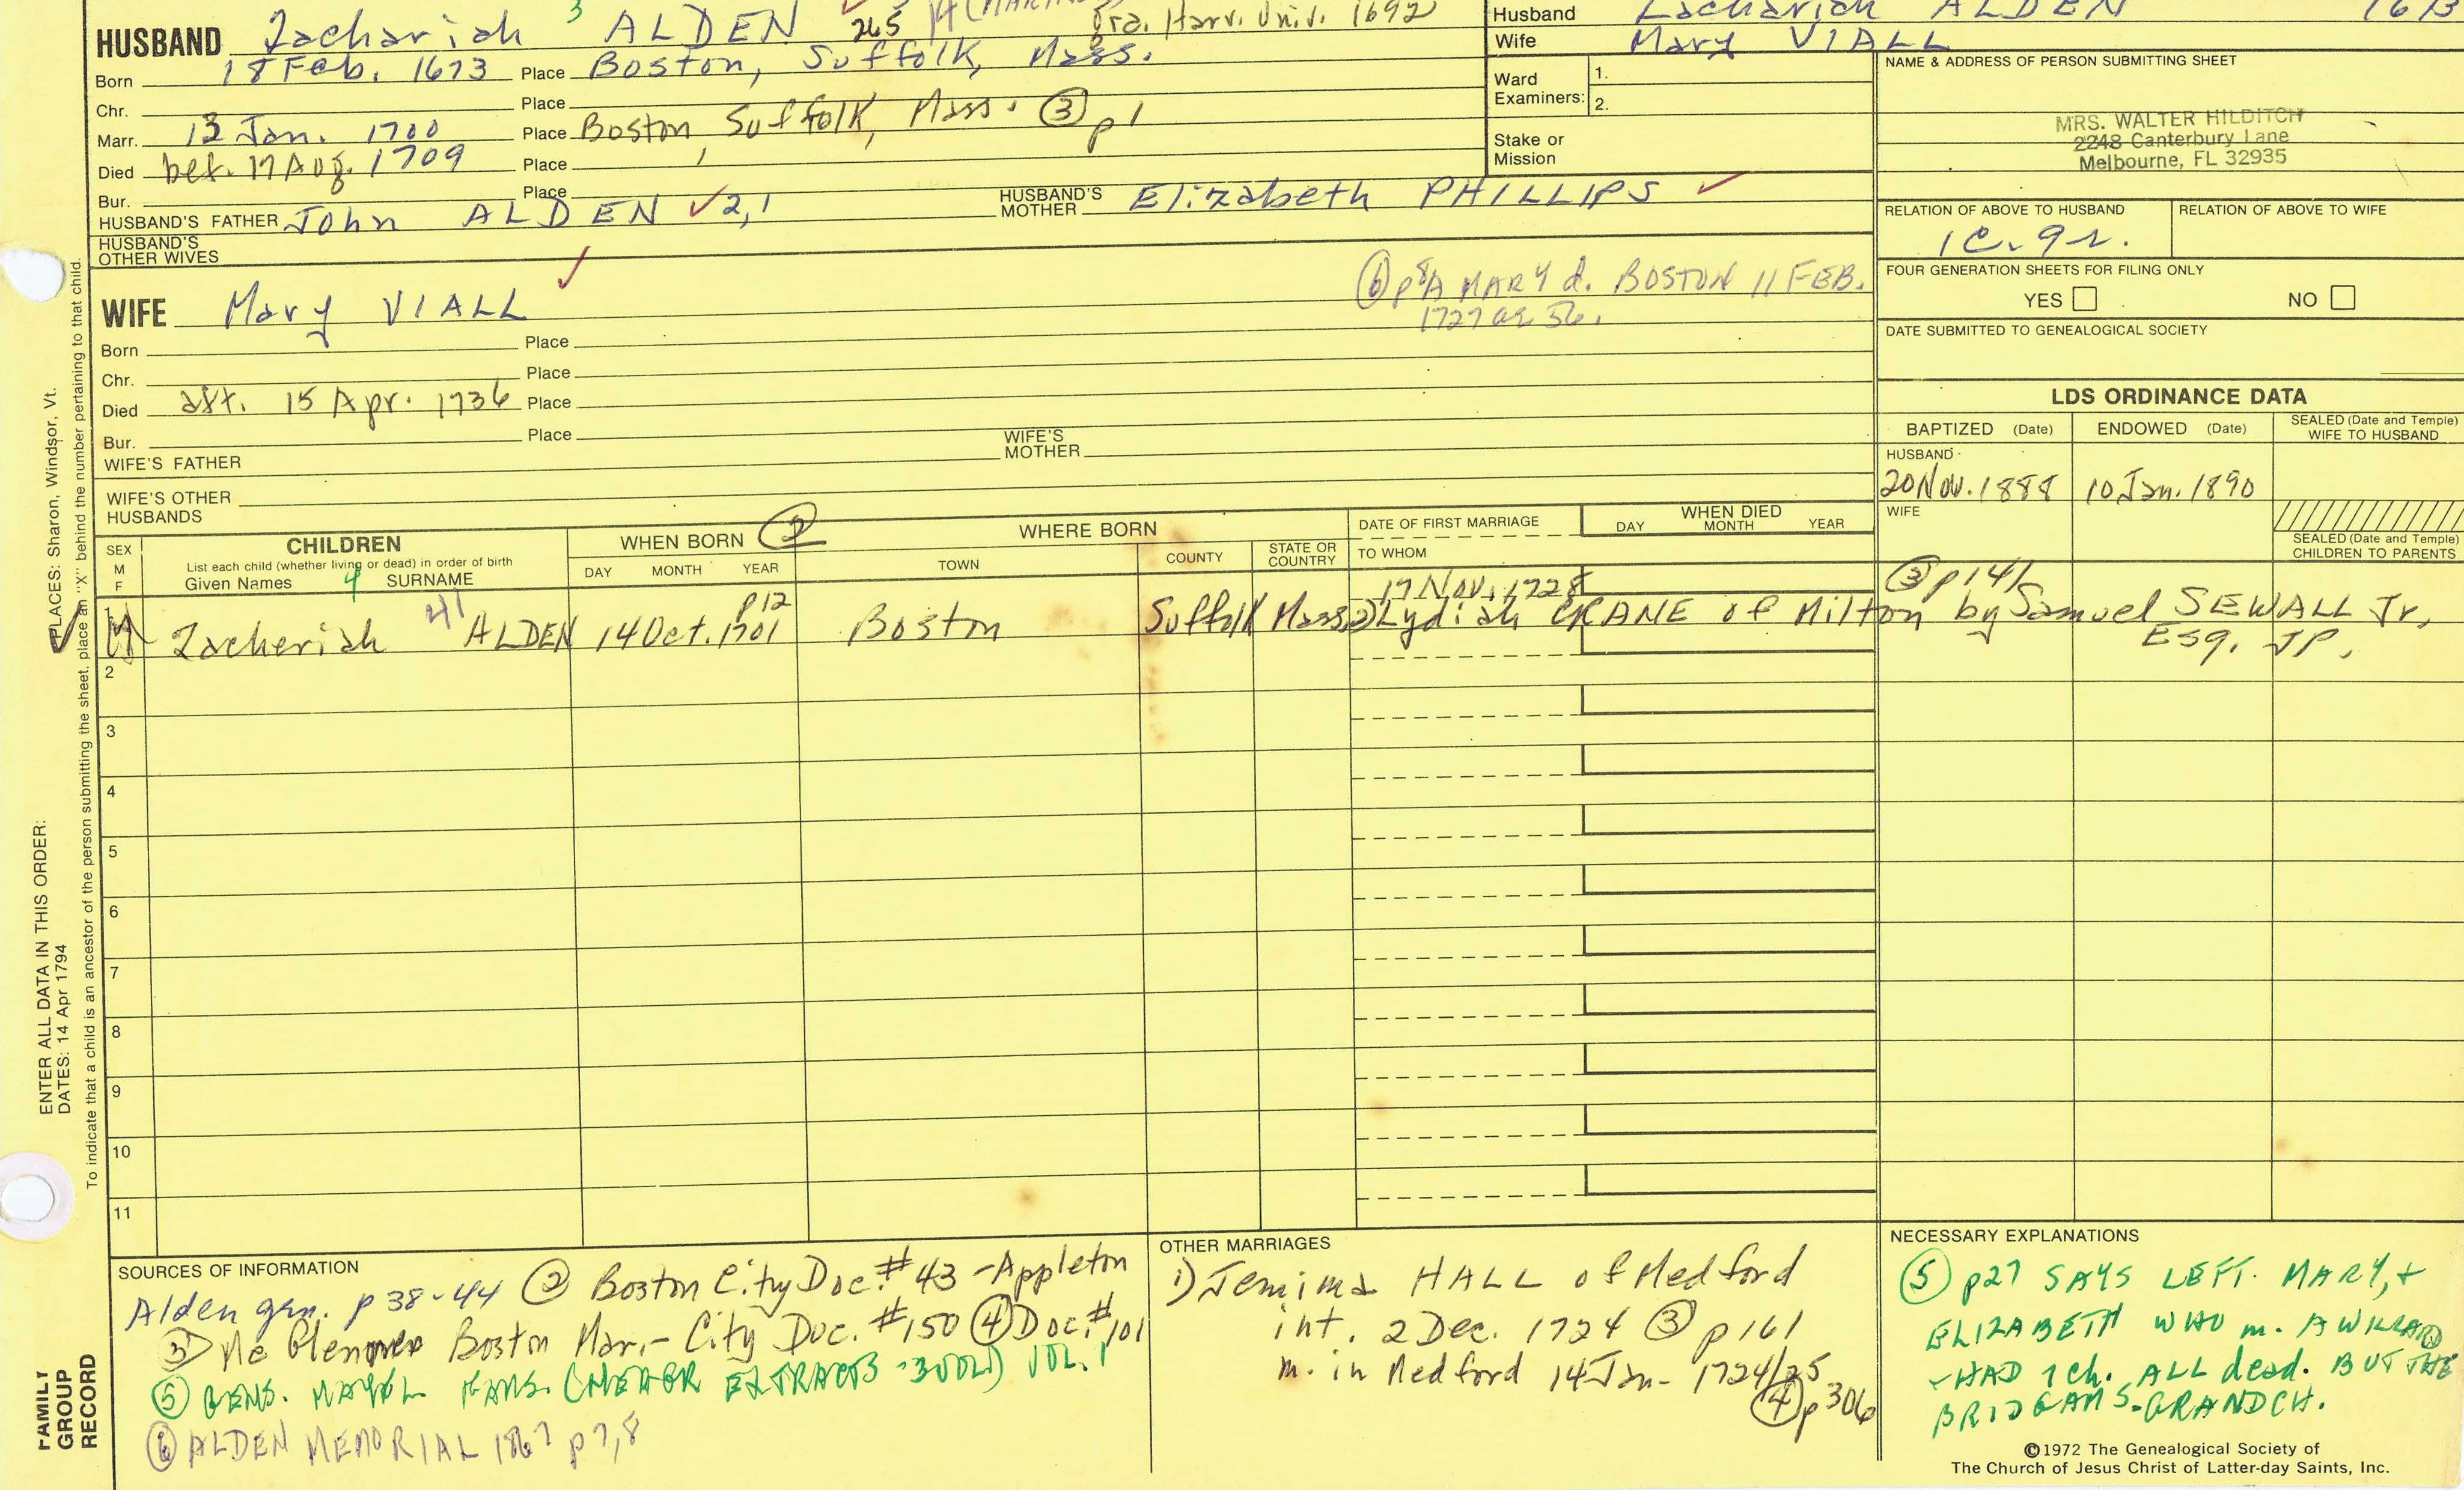 HUSBAND Zachariah 3 ALDEN 265 14 Gra. Harv. Univ. 1692
Born 18 Feb. 1673 Place Boston, Suffolk, Mass.
Chr. Place
Marr. 13 Jan. 1700 Place Boston, Suffolk, Mass. ③ p1
Died bef. 17 Aug. 1709 Place ,
Bur. Place
HUSBAND'S FATHER John ALDEN ✓2,1 HUSBAND'S MOTHER Elizabeth PHILLIPS ✓
HUSBAND'S OTHER WIVES
WIFE Mary VIALL ✓
⑥ p8 A MARY d. BOSTON 11 FEB.
1727 ae 56.
Born Place
Chr. Place
Died aft. 15 Apr. 1736 Place
Bur. Place
WIFE'S FATHER WIFE'S MOTHER
WIFE'S OTHER HUSBANDS
Husband Zachariah ALDEN 1673
Wife Mary VIALL
Ward Examiners: 1.
2.
Stake or Mission
NAME & ADDRESS OF PERSON SUBMITTING SHEET
MRS. WALTER HILDITCH
2248 Canterbury Lane
Melbourne, FL 32935
RELATION OF ABOVE TO HUSBAND RELATION OF ABOVE TO WIFE
1C. 9r.
FOUR GENERATION SHEETS FOR FILING ONLY
YES NO
DATE SUBMITTED TO GENEALOGICAL SOCIETY
LDS ORDINANCE DATA
BAPTIZED (Date) ENDOWED (Date) SEALED (Date and Temple) WIFE TO HUSBAND
HUSBAND
20 Nov. 1888 10 Jan. 1890
WIFE
SEALED (Date and Temple) CHILDREN TO PARENTS
SEX M F
CHILDREN
List each child (whether living or dead) in order of birth
Given Names 4 SURNAME
WHEN BORN ②
DAY MONTH YEAR
WHERE BORN
TOWN COUNTY STATE OR COUNTRY
DATE OF FIRST MARRIAGE
TO WHOM
WHEN DIED
DAY MONTH YEAR
17 Nov. 1728 ③ p141
1 M Zacheriah 41 ALDEN 14 Oct. 1701 p12 Boston Suffolk Mass. 2) Lydiah CRANE of Milton by Samuel SEWALL Jr.
Esq. JP.
2
3
4
5
6
7
8
9
10
11
SOURCES OF INFORMATION
Alden gen. p 38-44 ② Boston City Doc. #43 - Appleton
③ Mc Glennen Boston Mar. - City Doc. #150 ④ Doc. #101
⑤ GENS. MAYFL FAMS. (NEHGR EXTRACTS - 3 VOL.) VOL. 1
⑥ ALDEN MEMORIAL 1867 p 7,8
OTHER MARRIAGES
1) Jemima HALL of Medford
int. 2 Dec. 1724 ③ p161
m. in Medford 14 Jan. 1724/25
④ p306
NECESSARY EXPLANATIONS
⑤ p27 SAYS LEFT. MARY, +
ELIZABETH WHO m. A WILLARD
- HAD 1 ch. ALL dead. BUT THE
BRIDGAMS - GRANDCH.
©1972 The Genealogical Society of
The Church of Jesus Christ of Latter-day Saints, Inc.
ENTER ALL DATA IN THIS ORDER:
DATES: 14 Apr 1794
PLACES: Sharon, Windsor, Vt.
To indicate that a child is an ancestor of the person submitting the sheet, place an "X" behind the number pertaining to that child.
FAMILY
GROUP
RECORD